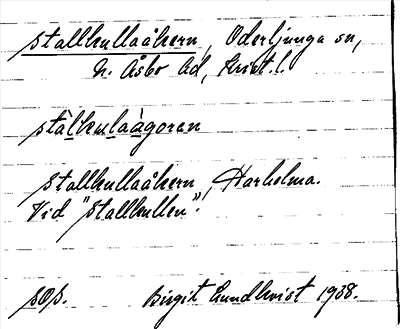 Stallkullaåkern, Oderljunga sn,
N. Åsbo hd, Krist. l.
stàlkulaàgoran
Stallkullaåkern, Harholma.
Vid "Stallkullen".
sOs. Birgit Lundkvist 1938.